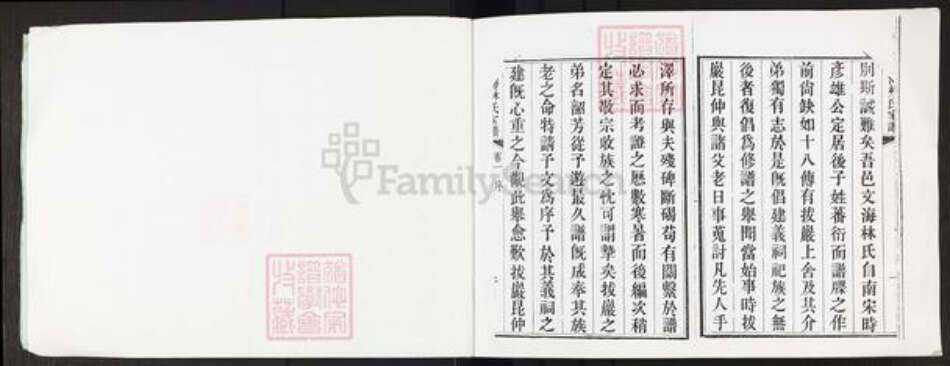 別斯誠難矣吾邑文海林氏自南宋時
彥雄公定居後子姓蕃衍而譜牒之作
前尚缺如十八傳有拔巖上舍及其介
弟獨有志於是既倡建義祠祀族之無
後者復倡爲修譜之舉聞當始事時拔
巖昆仲與諸父老日事蒐討凡先人手
澤所存與夫殘碑斷碣苟有關繫於譜
必求而考證之歷數寒暑而後編次稍
定其敬宗收族之忱可謂摯矣拔巖之
弟名韶芳從予遊最久譜既成奉其族
老之命特請予文爲序予於其義祠之
建既心重之今覩此舉愈歎拔巖昆仲
林氏家譜
卷一
FamilySearch